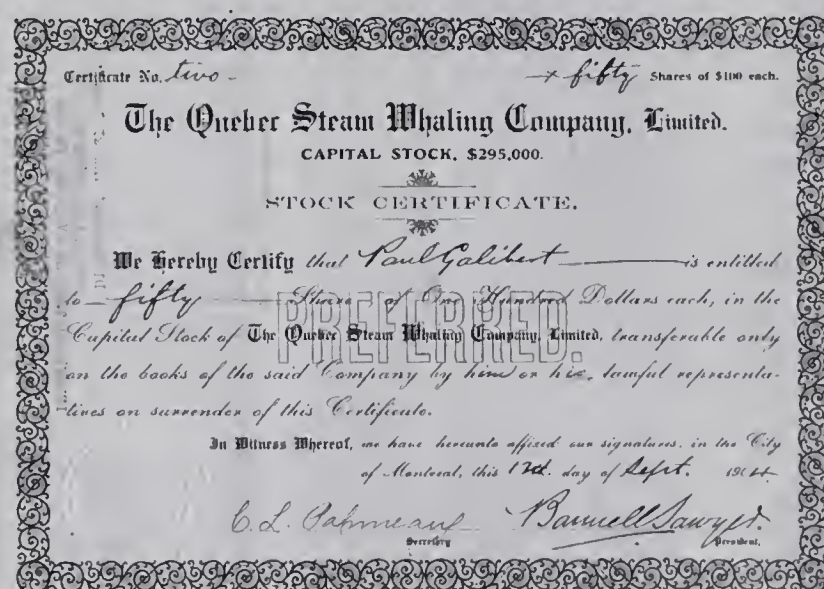 Certificate No. two - fifty Shares of $100 each.
The Quebec Steam Whaling Company, Limited.
CAPITAL STOCK, $295,000.
STOCK CERTIFICATE.
We Hereby Certify that Paul Galibert is entitled
to fifty Shares of One Hundred Dollars each, in the
PREFERRED.
Capital Stock of The Quebec Steam Whaling Company, Limited, transferable only
on the books of the said Company by him or his lawful representa-
tives on surrender of this Certificate.
In Witness Whereof, we have hereunto affixed our signatures, in the City
of Montreal, this day of Sept. 19
C. L.
Secretary President.